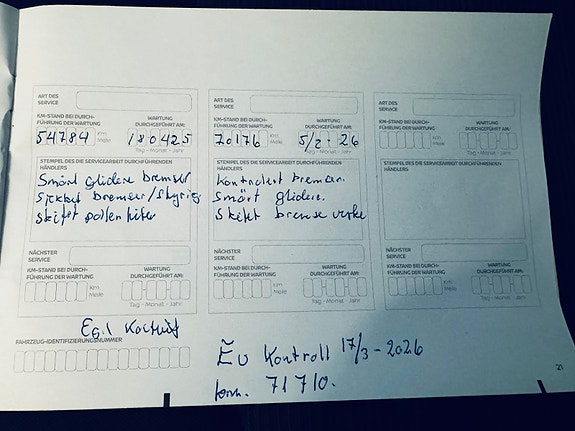 ART DES
SERVICE
KM-STAND BEI DURCH-
FÜHRUNG DER WARTUNG
WARTUNG
DURCHGEFÜHRT AM:
54784
Km
Meile
180425
Tag - Monat - Jahr
STEMPEL DES DIE SERVICEARBEIT DURCHFÜHRENDEN
HÄNDLERS
Smört glidere bremser
bremser/
skiftet pollenfilter
NÄCHSTER
SERVICE
KM-STAND BEI DURCH-
FÜHRUNG DER WARTUNG
WARTUNG
DURCHGEFÜHRT AM:
Km
Meile
Tag - Monat - Jahr
ART DES
SERVICE
KM-STAND BEI DURCH-
FÜHRUNG DER WARTUNG
WARTUNG
DURCHGEFÜHRT AM:
70176
Km
Meile
5/2 26
Tag - Monat - Jahr
STEMPEL DES DIE SERVICEARBEIT DURCHFÜHRENDEN
HÄNDLERS
Kontrolert bremser.
Smört glidere.
Skiftet bremse
NÄCHSTER
SERVICE
KM-STAND BEI DURCH-
FÜHRUNG DER WARTUNG
WARTUNG
DURCHGEFÜHRT AM:
Km
Meile
Tag - Monat - Jahr
ART DES
SERVICE
KM-STAND BEI DURCH-
FÜHRUNG DER WARTUNG
WARTUNG
DURCHGEFÜHRT AM:
Km
Meile
Tag - Monat - Jahr
STEMPEL DES DIE SERVICEARBEIT DURCHFÜHRENDEN
HÄNDLERS
NÄCHSTER
SERVICE
KM-STAND BEI DURCH-
FÜHRUNG DER WARTUNG
WARTUNG
DURCHGEFÜHRT AM:
Km
Meile
Tag - Monat - Jahr
FAHRZEUG-IDENTIFIZIERUNGSNUMMER
Eu Kontroll 17/3-2026
71710.
21